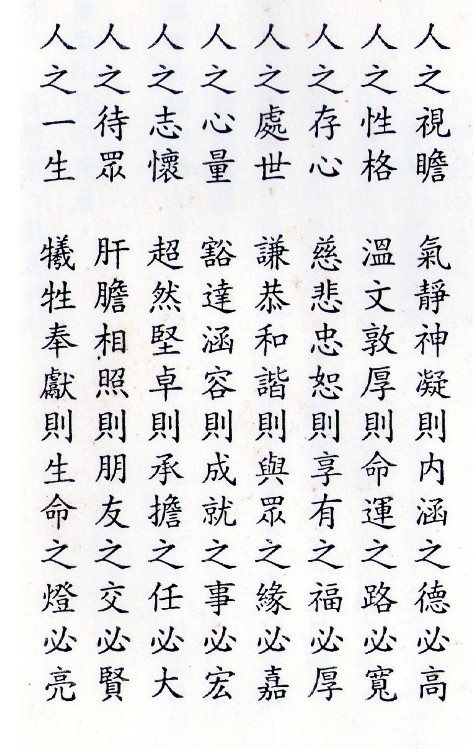 人之視瞻　氣靜神凝則內涵之德必高
人之性格　溫文敦厚則命運之路必寬
人之存心　慈悲忠恕則享有之福必厚
人之處世　謙恭和諧則與眾之緣必嘉
人之心量　豁達涵容則成就之事必宏
人之志懷　超然堅卓則承擔之任必大
人之待眾　肝膽相照則朋友之交必賢
人之一生　犧牲奉獻則生命之燈必亮